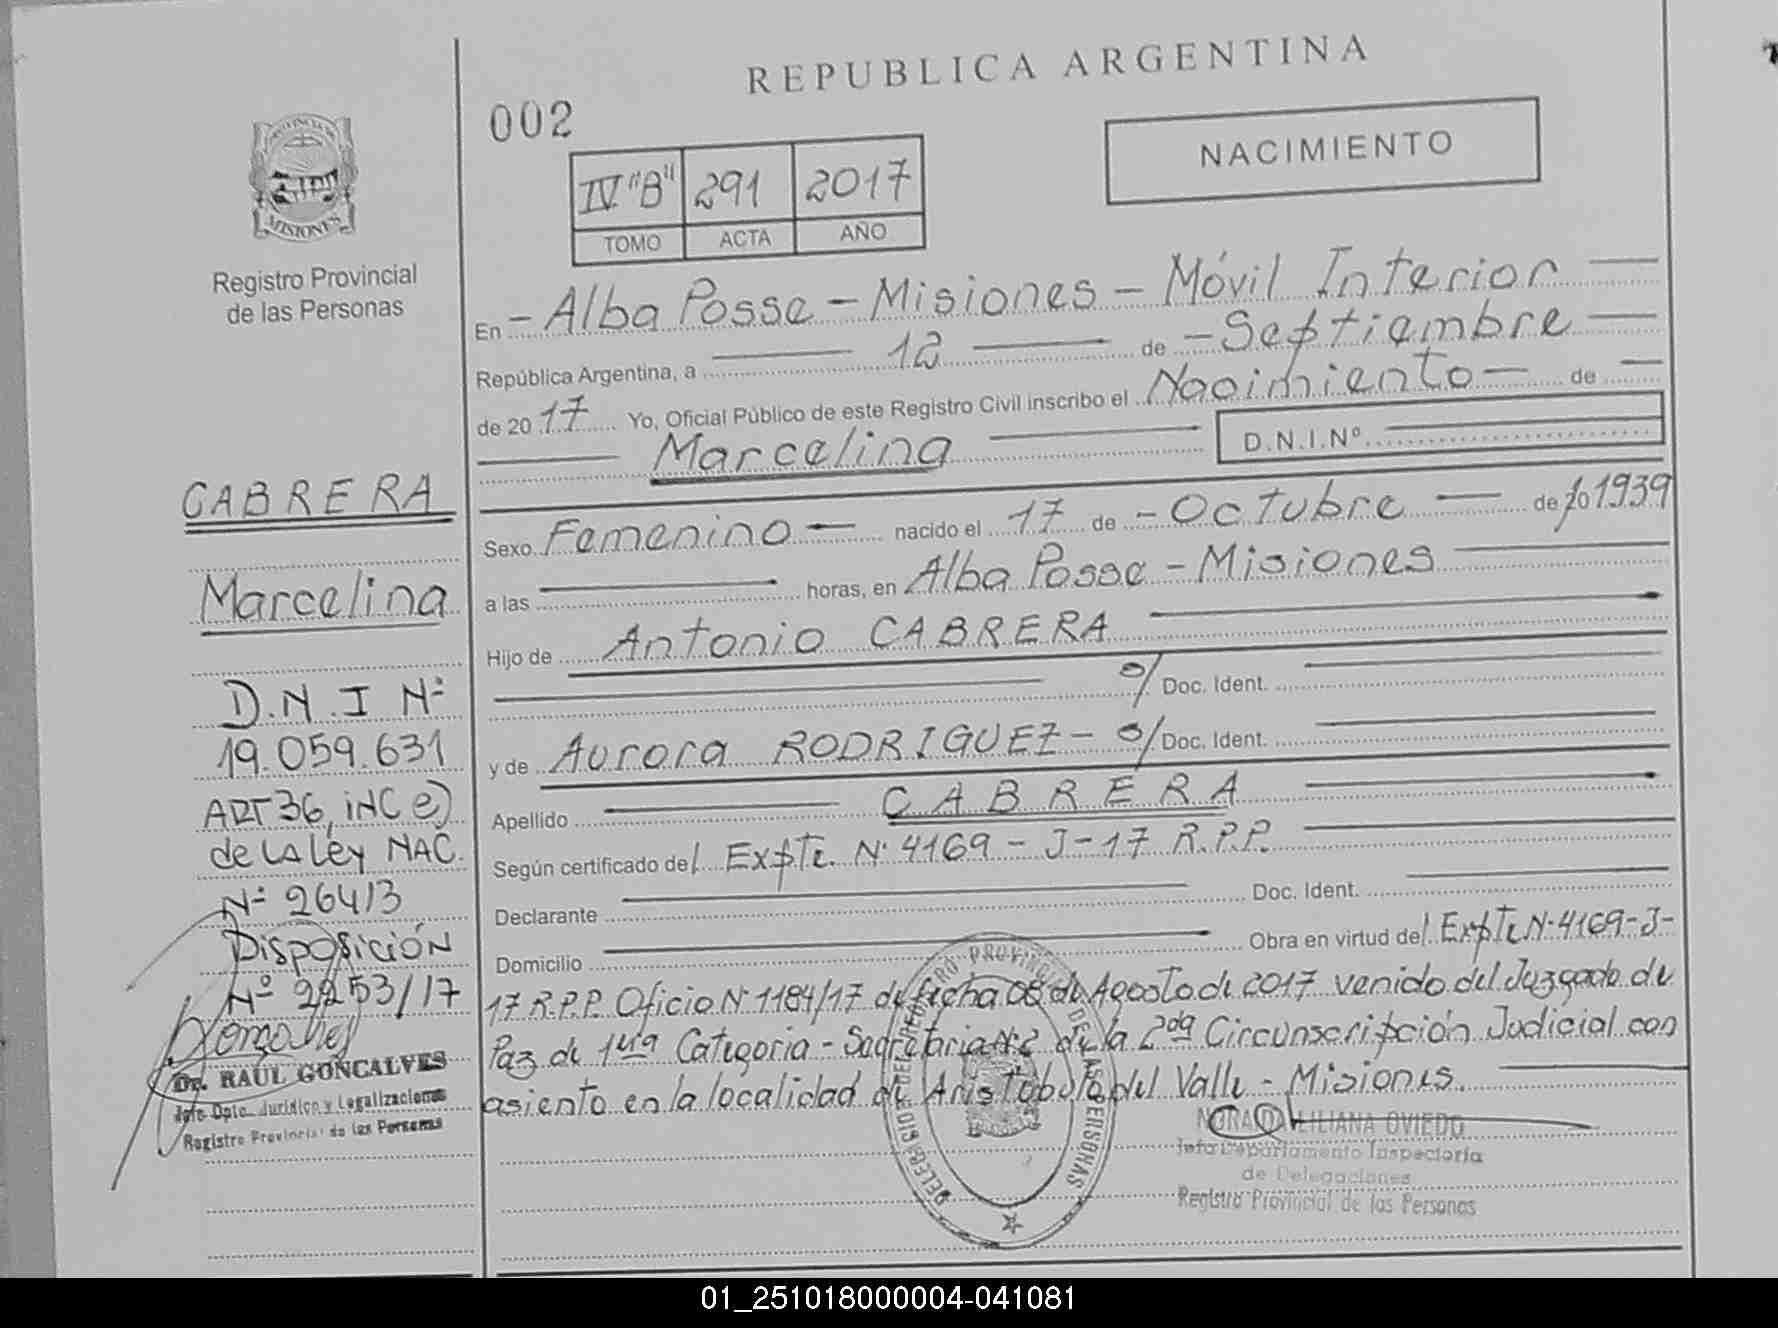 REPUBLICA ARGENTINA
002
NACIMIENTO
IV "B" 291 2017
TOMO ACTA AÑO
PROVINCIA DE
MISIONES
Registro Provincial
de las Personas
En - Alba Posse - Misiones - Móvil Interior
República Argentina, a 12 de - Septiembre
de 2017 Yo, Oficial Público de este Registro Civil inscribo el Nacimiento - de
Marcelina D.N.I.Nº
Sexo Femenino - nacido el 17 de - Octubre de 1939
a las horas, en Alba Posse - Misiones
Hijo de Antonio CABRERA
Doc. Ident.
y de Aurora RODRIGUEZ - Doc. Ident.
Apellido CABRERA
Según certificado del Expte. Nº 4169 - J - 17 R.P.P.
Declarante Doc. Ident.
Domicilio Obra en virtud del Expte Nº 4169-J-
17 R.P.P. Oficio Nº 1184/17 de fecha 08 de Agosto de 2017 venido del Juzgado de
Paz de 1era Categoria - Secretaria Nº 2 de la 2da Circunscripción Judicial con
asiento en la localidad de Aristobulo del Valle - Misiones.
NORA LILIANA OVIEDO
Jefa Departamento Inspectoria
de Delegaciones
Registro Provincial de las Personas
CABRERA
Marcelina
D.N.I Nº
19.059.631
ART 36, iNC e)
de LA Ley NAC.
Nº 26413
Disposición
Nº 2253/17
Dr. RAUL GONCALVES
Jefe Dpto. Jurídico y Legalizaciones
Registro Provincial de las Personas
01_251018000004-041081